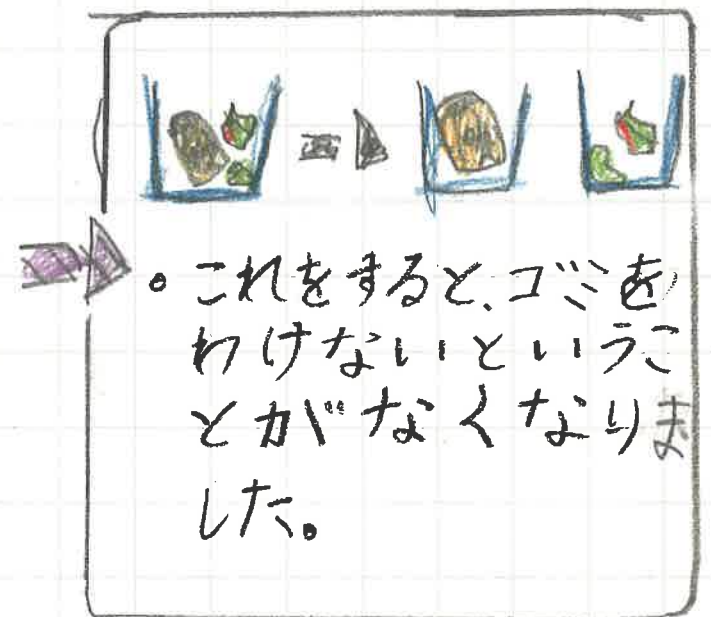 ・これをすると、ゴミを
わけないというこ
とがなくなりま
した。